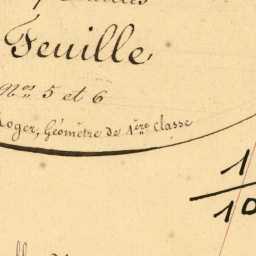 Feuille
Nos 5 et 6
Géomètre de 1ère classe
1
10